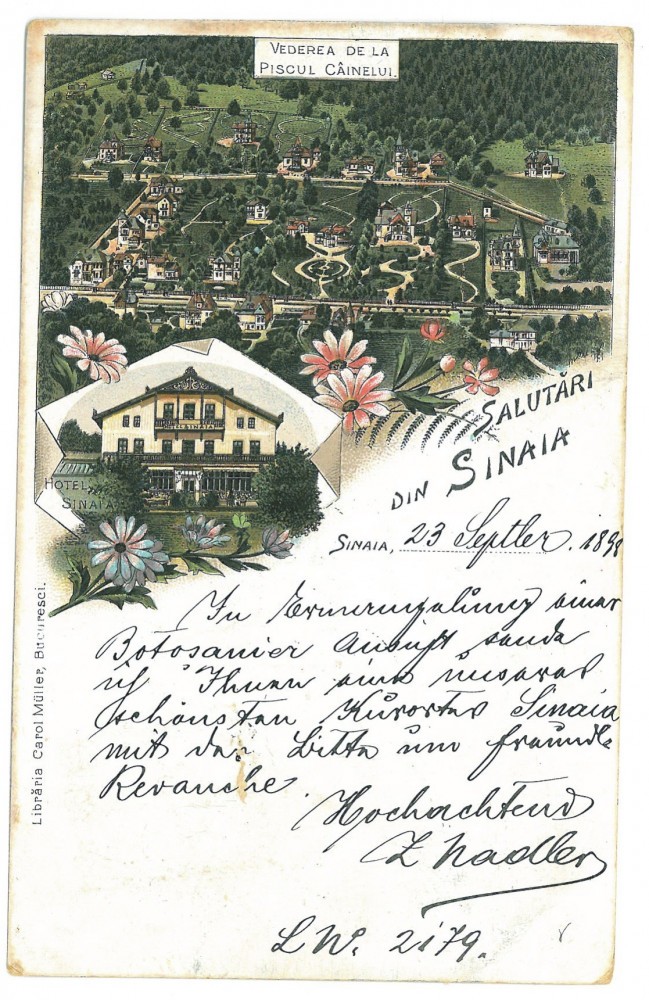 VEDEREA DE LA
PISCUL CÂINELUI.
HOTEL SINAIA
HOTEL
SINAIA
SALUTĂRI
DIN SINAIA
SINAIA, 23 Septber. 189
In Ermangelung einer
Botosanier Ansicht sende
ich Ihnen eine unseres
schönsten Kurortes Sinaia
mit der Bitte um freundl.
Revanche.
Hochachtend
Z Nadler
LW. 2179.
Librăria Carol Müller, Bucuresci.